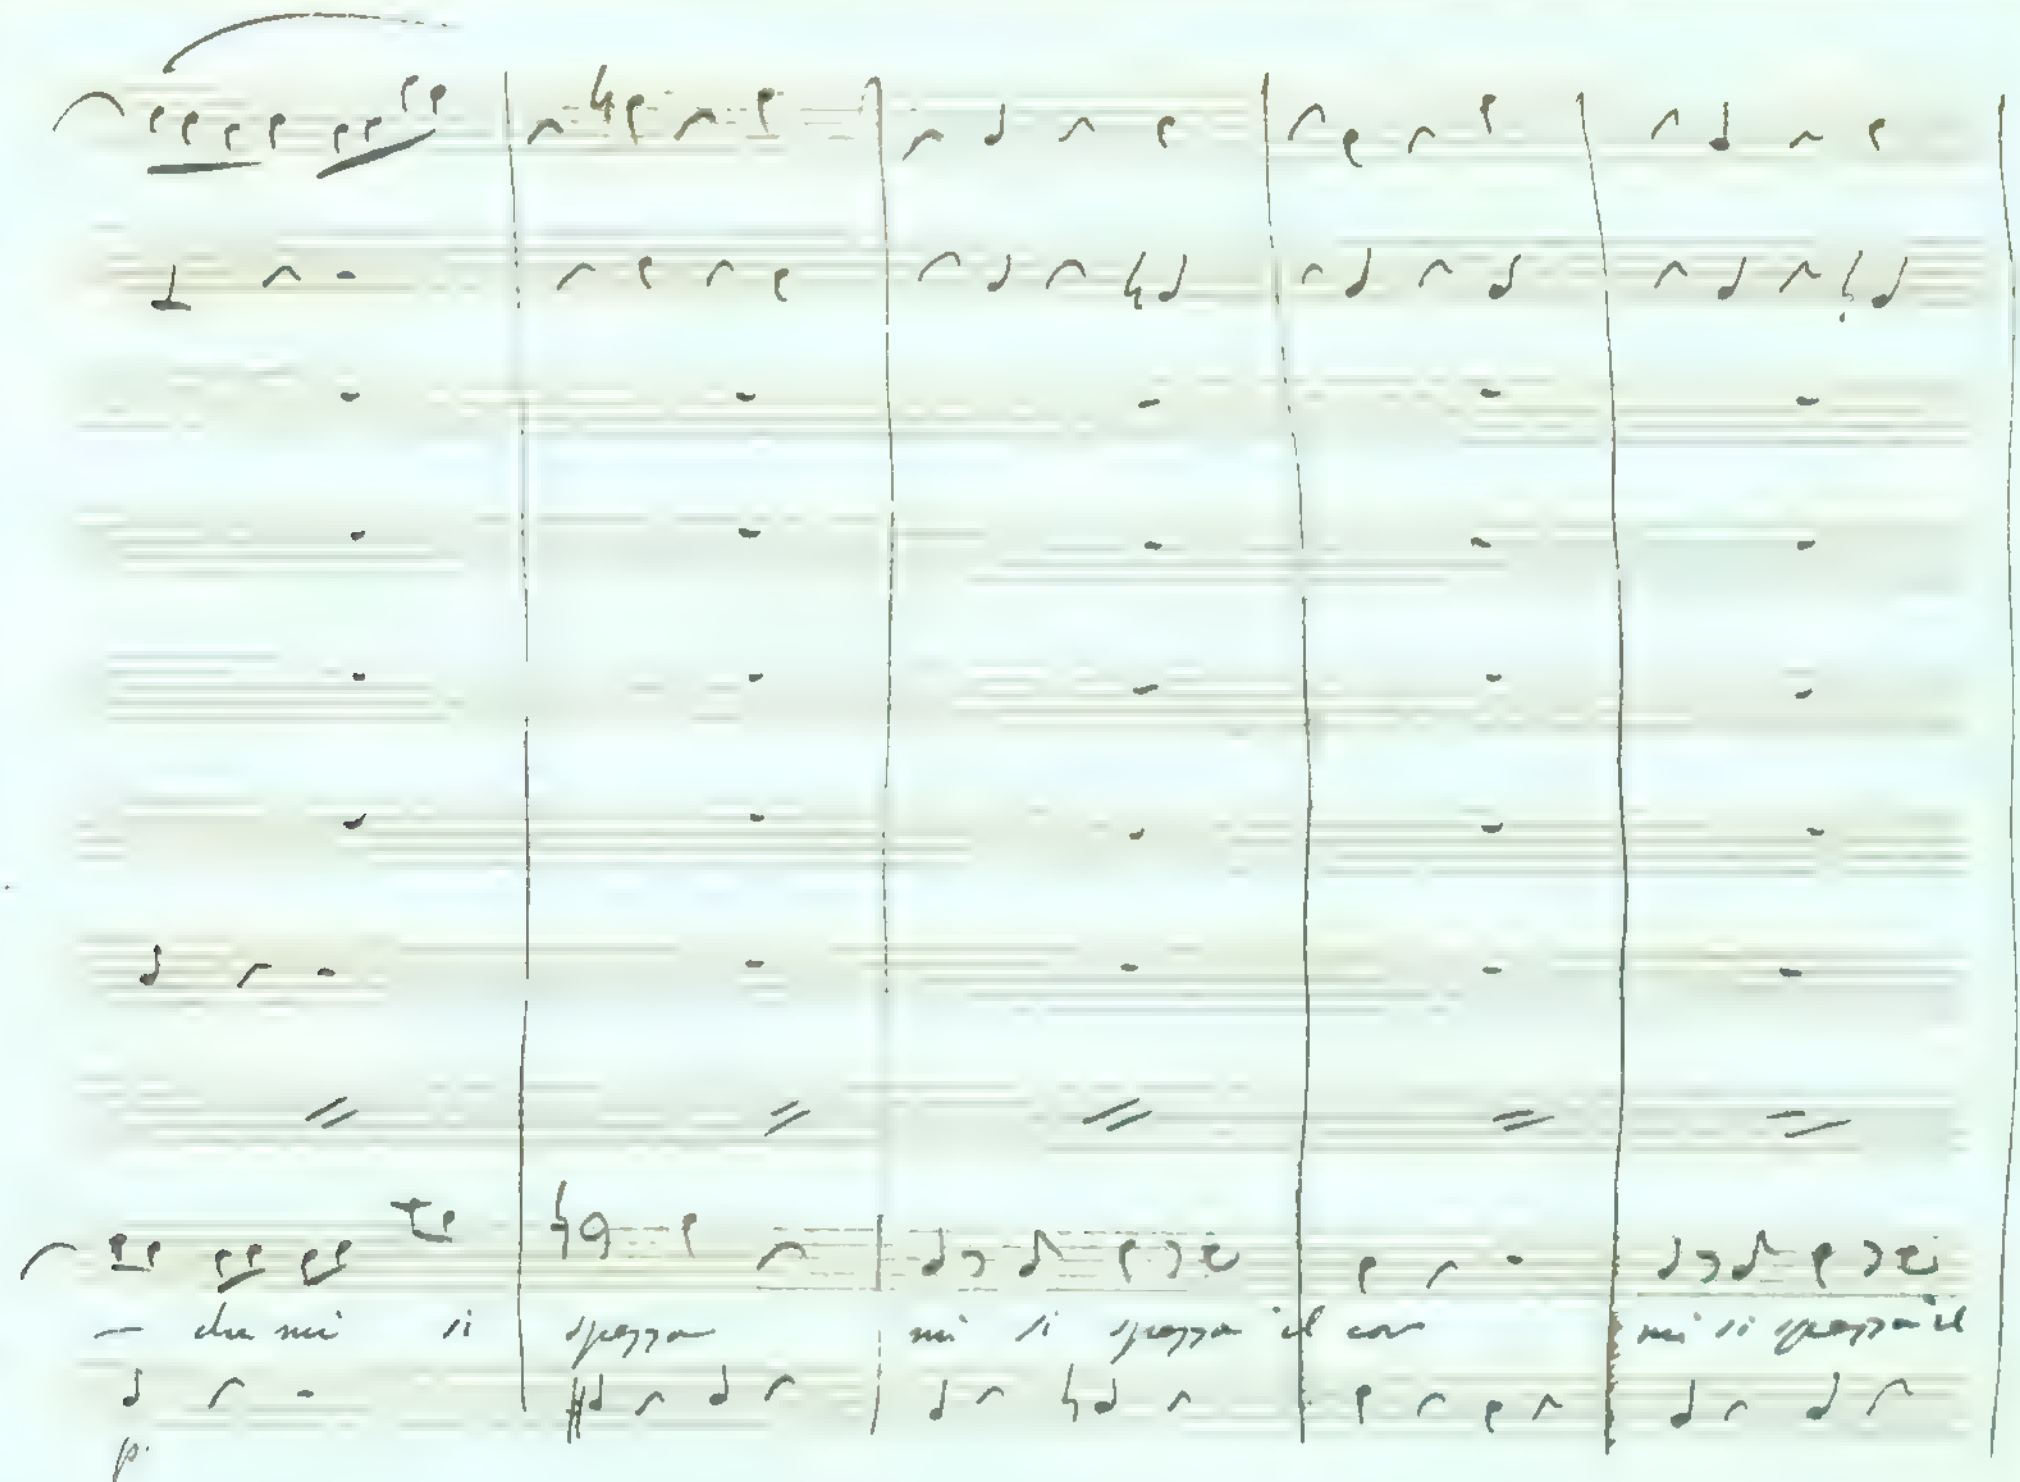 che mi si spezza mi si spezza il cor mi si spezza il
p.